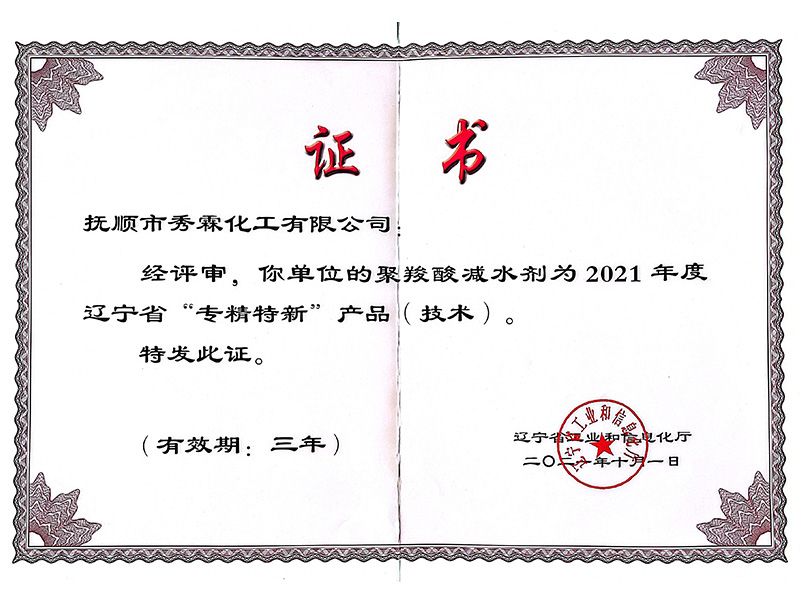 证 书
抚顺市秀霖化工有限公司：
经评审，你单位的聚羧酸减水剂为 2021 年度
辽宁省“专精特新”产品（技术）。
特发此证。
（有效期：三年）
辽宁省工业和信息化厅
辽宁省工业和信息化厅
二〇二一年十月一日